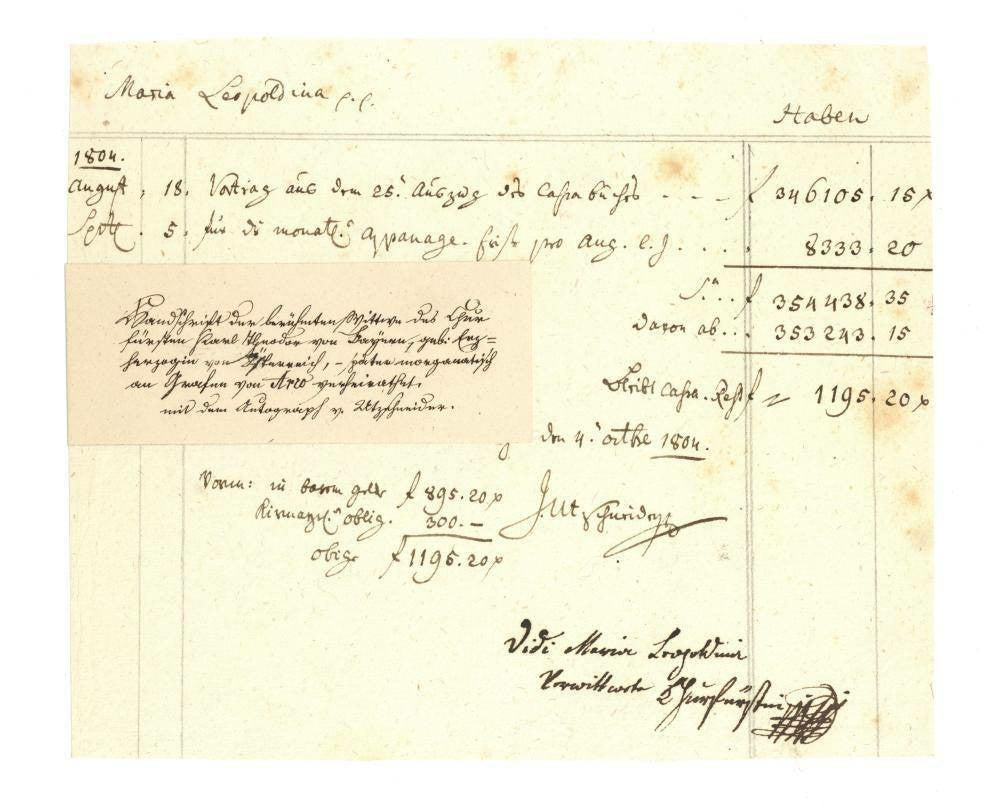 Maria Leopoldina p. p.
Haben
1804.
August 18. Vortrag aus dem 25.ⁿ Auszug des Cassa buches - - - f 346105. 15 x
Septe. 5. für die monatl.ᵉ Appanage. Frist pro Aug. l. J. . . . . 8333. 20
S.ᵃ . . f 354438. 35
Davon ab . . . 353243. 15
Bleibt Cassa. Rest f 1195. 20 x
den 4.ⁿ octbre 1804.
Handschrift der berühmten Wittwe des Chur
fürsten Karl Theodor von Bayern, geb. Erz=
herzogin von Österreich, - später morganatisch
an Grafen von Arco verheirathet.
mit dem Autograph v. Utzschneider.
in barem geld f 895. 20 x
oblig. 300. -
obige f 1195. 20 x
J. Utzschneider
Vidi Maria Leopoldina
Verwittwete Churfürstin